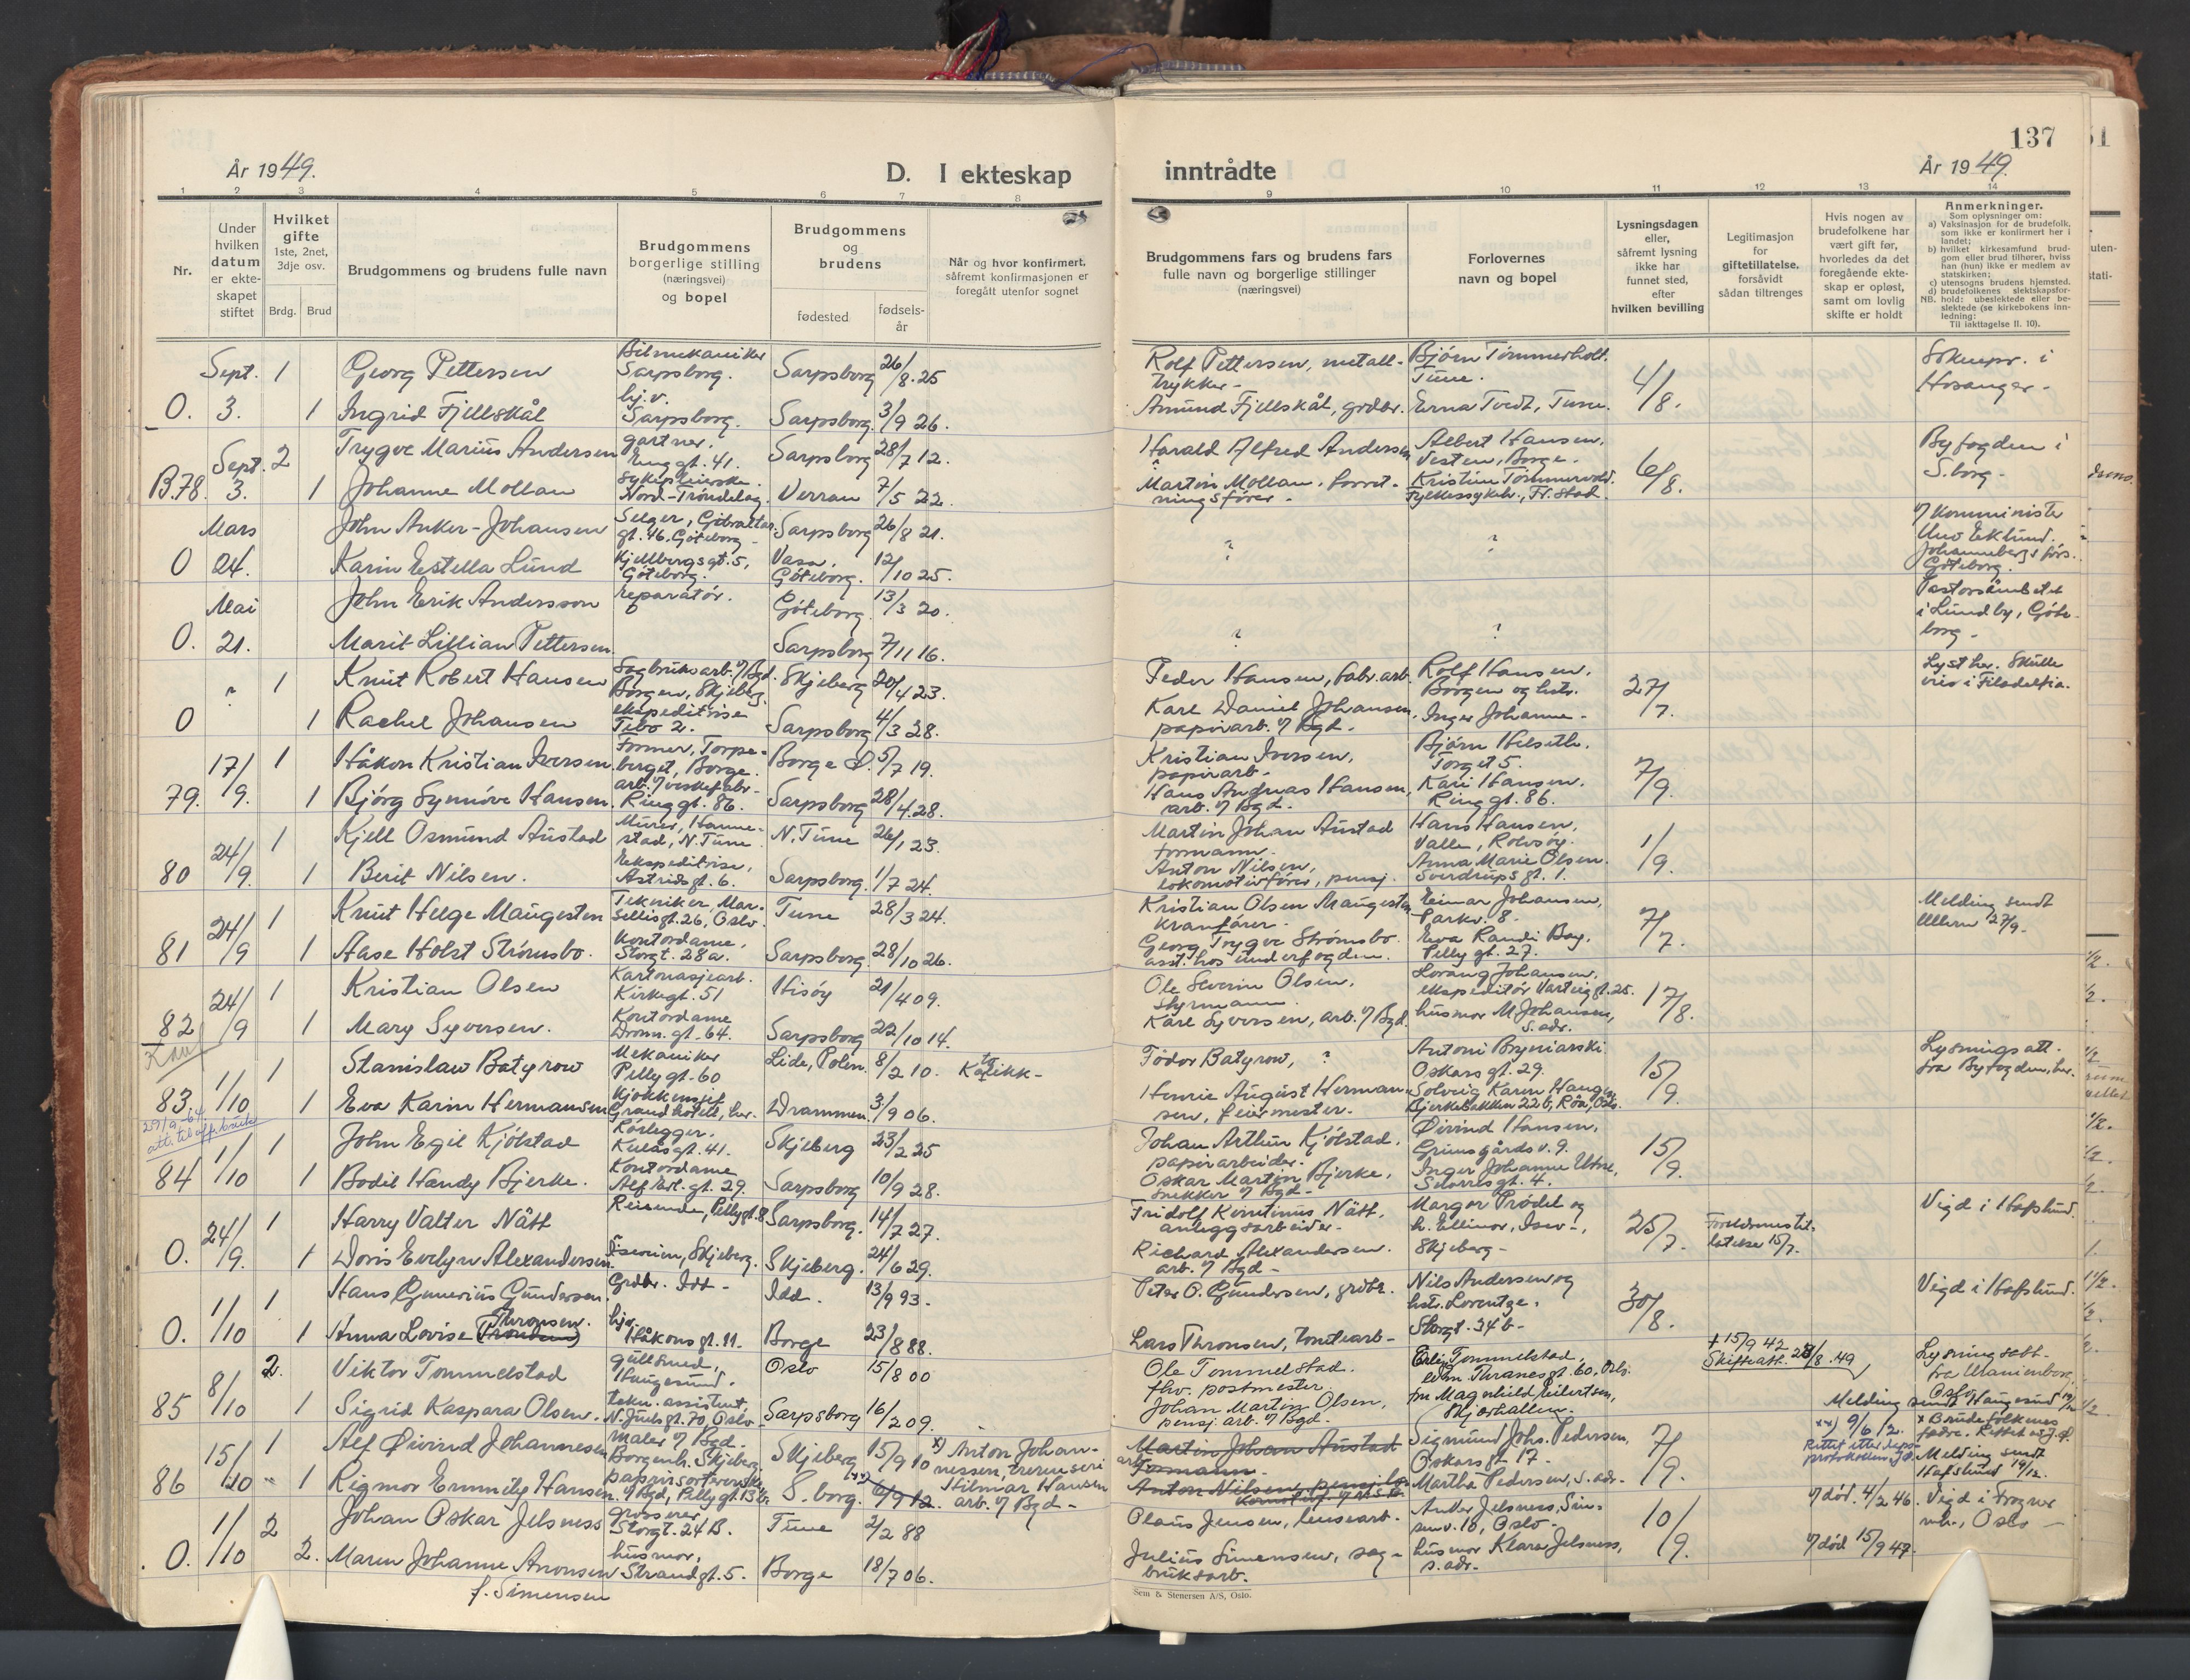 137
År 1949.
D. I ekteskap
inntrådte
År 1949.
1 2 3 4 5 6 7 8 9 10 11 12 13 14
Nr.
Under hvilken datum er ekteskapet stiftet
Hvilket gifte 1ste, 2net, 3dje osv.
Brdg. Brud
Brudgommens og brudens fulle navn
Brudgommens borgerlige stilling (næringsvei) og bopel
Brudgommens og brudens
fødested
fødselsår
Når og hvor konfirmert, såfremt konfirmasjonen er foregått utenfor sognet
Brudgommens fars og brudens fars fulle navn og borgerlige stillinger (næringsvei)
Forlovernes navn og bopel
Lysningsdagen eller, såfremt lysning ikke har funnet sted, efter hvilken bevilling
Legitimasjon for giftetillatelse, forsåvidt sådan tiltrenges
Hvis nogen av brudefolkene har vært gift før, hvorledes da det foregående ekteskap er opløst, samt om lovlig skifte er holdt
Anmerkninger.
Som oplysninger om:
a) Vaksinasjon for de brudefolk, som ikke er konfirmert her i landet;
b) hvilket kirkesamfund brudgom eller brud tilhører, hviss han (hun) ikke er medlem av statskirken;
c) utensogns brudens hjemsted.
d) brudefolkenes slektskapsforhold: ubeslektede eller beslektede (se kirkebokens innledning:
NB.
Til iakttagelse II. 10).
Sept. 1 Georg Pettersen Bilmekaniker Sarpsborg. Sarpsborg 26/8.25 Rolf Pettersen, metalltrykker - Bjørn Tømmerholt. Tune. 4/8. Soknepr. i Hosanger -
O. 3. 1 Ingrid Fjellskål hj.v. Sarpsborg. Sarpsborg. 3/9 26. Amund Fjellskål, grdbr. Erna Tvedt, Tune.
Sept. 2 Trygve Marius Andersen gartner, Enggt. 41. Sarpsborg 28/7 12. Harald Alfred Andersen Albert Hansen, Vesten, Borge. 6/8. Byfogden i S.borg -
B.78. 3. 1 Johanne Mollan sykepleierske. Nord-Trøndelag. Verran 7/5 22. Martin Mollan, forretningsfører - Kristine Tømmervold. Fylkessykeh., Fr.stad
Mars John Anker-Johansen Selger, Gibraltargt. 46, Göteborg - Sarpsborg 26/8 21. ? ? v/ Komminister Uno Eklund. Johannebergs förs. Göteborg.
O 24. Karin Estella Lund Kjellbergsgt. 5, Göteborg. Vasa, Göteborg. 12/10 25.
Mai John Erik Andersson reparatör. Göteborg. 13/3 20. ? ? Pastorsämbetet i Lundby, Göteborg -
O. 21. Marit Lillian Pettersen. Sarpsborg 7/11 16.
? 1 Knut Robert Hansen Sagbruksarb. v/ Bgd. Borgen, Skjeberg. Skjeberg 20/4 23. Peder Hansen, fabr.arb. Rolf Hansen, Borgen og hstr. 27/7. Lyst her. Skulle vies i Filadelfia.
O 1 Rachel Johansen ekspeditrise Tebo 2. Sarpsborg 4/3 28. Karl Daniel Johansen, papirarb. v/ Bgd. Inger Johanne -
17/9. 1 Håkon Kristian Iversen. Former, Torpeberget, Borge. Borge Ø. 5/7 19. Kristian Iversen, papirarb - Bjørn Helseth. Torget 5. 7/9.
79. 1 Bjørg Synnøve Hansen. arb. v/ veskefabr - Ringgt. 86. Sarpsborg 28/4.28. Hans Andreas Hansen, arb. v/ Bgd. Kari Hansen. Ringgt. 86.
24/9. 1 Kjell Osmund Austad Murer, Hannestad, N. Tune. N. Tune 26/1 23. Martin Johan Austad formann. Hans Hansen, Valle, Rolvsøy. 1/9.
80 1 Berit Nilsen. Ekspeditrise, Astridsgt. 6. Sarpsborg. 1/7 24. Anton Nilsen, lokomotivfører, pensj. Anna Marie Olsen. Sverdrupsgt. 1.
24/9 1 Knut Helge Maugesten Tekniker, Marselisgt. 26, Oslo. Tune 28/3 24. Kristian Olsen Maugesten kranfører. Einar Johansen, Parkv. 8. 7/7. Melding sendt Ullern 27/9.
81 1 Aase Holst Strømsbo. Kontordame, Storgt. 28a. Sarpsborg. 28/10 26. Georg Trygve Strømsbo asst. hos underfogden. Eva Randi Bay, Pellygt. 27.
24/9 1 Kristian Olsen Kartonasjearb. Kirkegt. 51 Hisøy 21/4 09. Ole Severin Olsen, styrmann. Lorang Johansen, ekspeditør Varteiggt. 25. 17/8.
82 1 Mary Syversen. Kontordame Dronn.gt. 64. Sarpsborg 22/10 14. Kåre Syversen, arb. v/ Bgd. husmor M Johansen, s.adr.
1/10 1 Stanislaw Batyrow Mekaniker Pellygt. 60 Lide, Polen. 8/2 10. Katolikk - Födor Batyrow, ? Antoni Bryniarski Oskarsgt. 29. 15/9. Lysningsatt. fra Byfogden, her.
83 1 Eva Karin Hermansen Kjøkkensjef Grand hotell, her. Drammen 3/9 06. Henrie August Hermansen, feiermester. Solveig Karen Haugen Bjerkebakken 22b, Røa, Oslo.
1/10 1 John Egil Kjølstad Rørlegger, Kulåsgt. 41. Skjeberg 23/2 25 Johan Arthur Kjølstad, papirarbeider. Øivind Hansen, Grimsgårdsv. 9. 15/9.
84 1 Bodil Handy Bjerke. Kontordame Alf Erl.gt. 29. Sarpsborg 10/9 28. Oskar Martin Bjerke, snekker v/ Bgd - Inger Johanne Utne, Snorresgt. 4.
24/9. 1 Harry Valter Nätt Reisende, Pellygt. 8 Sarpsborg. 14/7 27. Fridolf Kvintinus Nätt, anleggsarbeider - Margor Prødel og h. Ellinor, Isev -, Skjeberg - 25/7. Foreldrenes tillatelse 15/7. Vigd i Hafslund.
O. 1 Doris Evelyn Alexandersen. Iseveien, Skjeberg. Skjeberg. 24/6 29. Richard Alexandersen. arb. v/ Bgd -
1/10 1 Hans Gunerius Gundersen. Grdbr. Idd - Idd. 13/9 93 - Peter O. Gundersen, grdbr. Nils Andersen og hstr. Lorentze, Storgt. 34b - 30/8. Vigd i Hafslund.
O. 1 Anna Lovise Thronsen. hjv. Håkonsgt. 11. Borge 23/8 88. Lars Thronsen, tomtearb -
8/10 2. Viktor Tommelstad gullsmed, Haugesund. Oslo 15/8 00 Ole Tommelstad. fhv. postmester. Erling Tommelstad, Edm. Thranesgt. 60, Oslo. + 15/9 42 Skifteatt. 28/8.49 Lysningsatt. fra Uranienborg, Oslo
85 1 Sigrid Kaspara Olsen. tekn. assistent, N. Juelsgt. 70, Oslo Sarpsborg 16/2 09. Johan Martin Olsen, pensj. arb. v/ Bgd. fru Magnhild Eilertsen, Skjærhallen. Melding sendt Haugesund
15/10 1 Alf Øivind Johannesen maler v/ Bgd. Borgenh. Skjeberg. Skjeberg 15/9 10 x) Anton Johannessen, Martin Johan Austad Formann. Sigmund Johs. Pedersen, Oskarsgt. 17. 7/9. xx) 9/6 12. Rettet etter dåpsprotokollen x Brudefolkenes fedre. Rettet
86 1 Rigmor Emmily Hansen. papirsorter v/ Bgd, Pellygt. 13b. S.borg. xx) 6/9 12. Hilmar Hansen arb. v/ Bgd - Anton Nilsen, pensj. Martha Pedersen, s.adr. Melding sendt Hafslund 19/12.
1/10 2 Johan Oskar Jelsness grosserer Storgt. 24B. Tune 2/2 88 Claus Jensen, lensearb. Anker Jelsness, Sinsenv. 10, Oslo - 10/9. v/ død. 4/2 46. Vigd i Frogner Oslo -
O. 2. Maren Johanne Aronsen f. Simensen husmor, Strandgt. 5. Borge 18/7 06. Julius Simensen, sagbruksarb. husmor Klara Jelsness, s.adr. v/ død 15/9 47.
Sem & Stenersen A/S, Oslo.